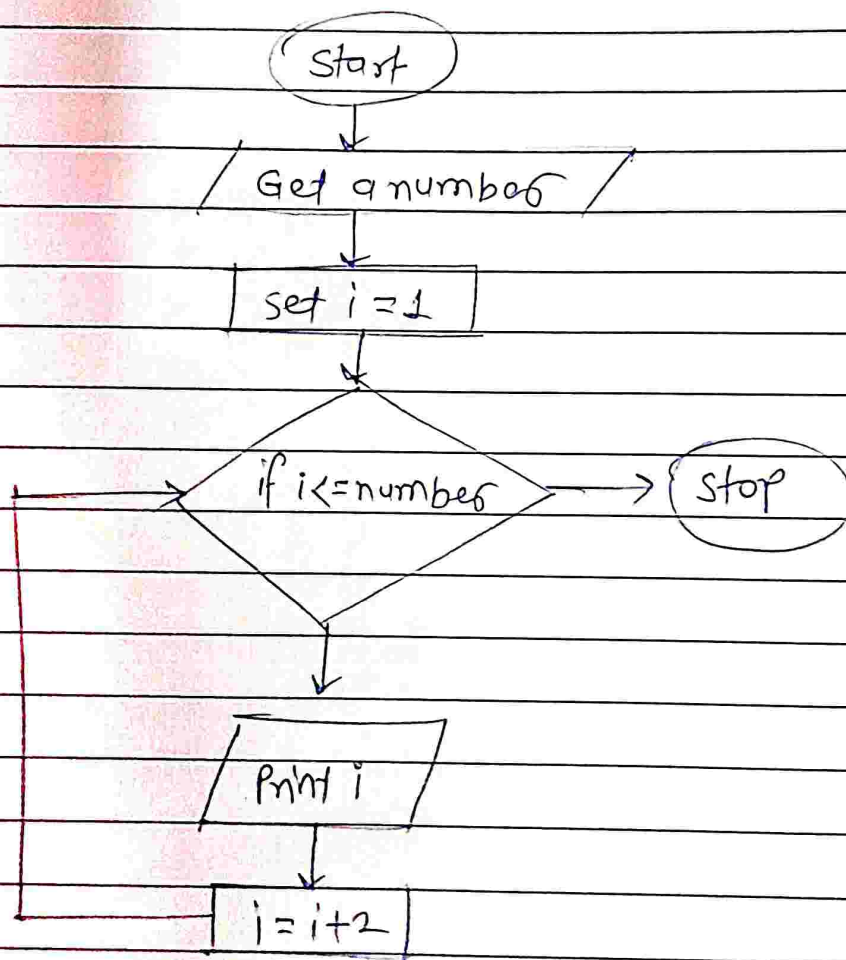 Start
Get a number
set i = 1
if i<=number
Stop
Print i
i = i+2